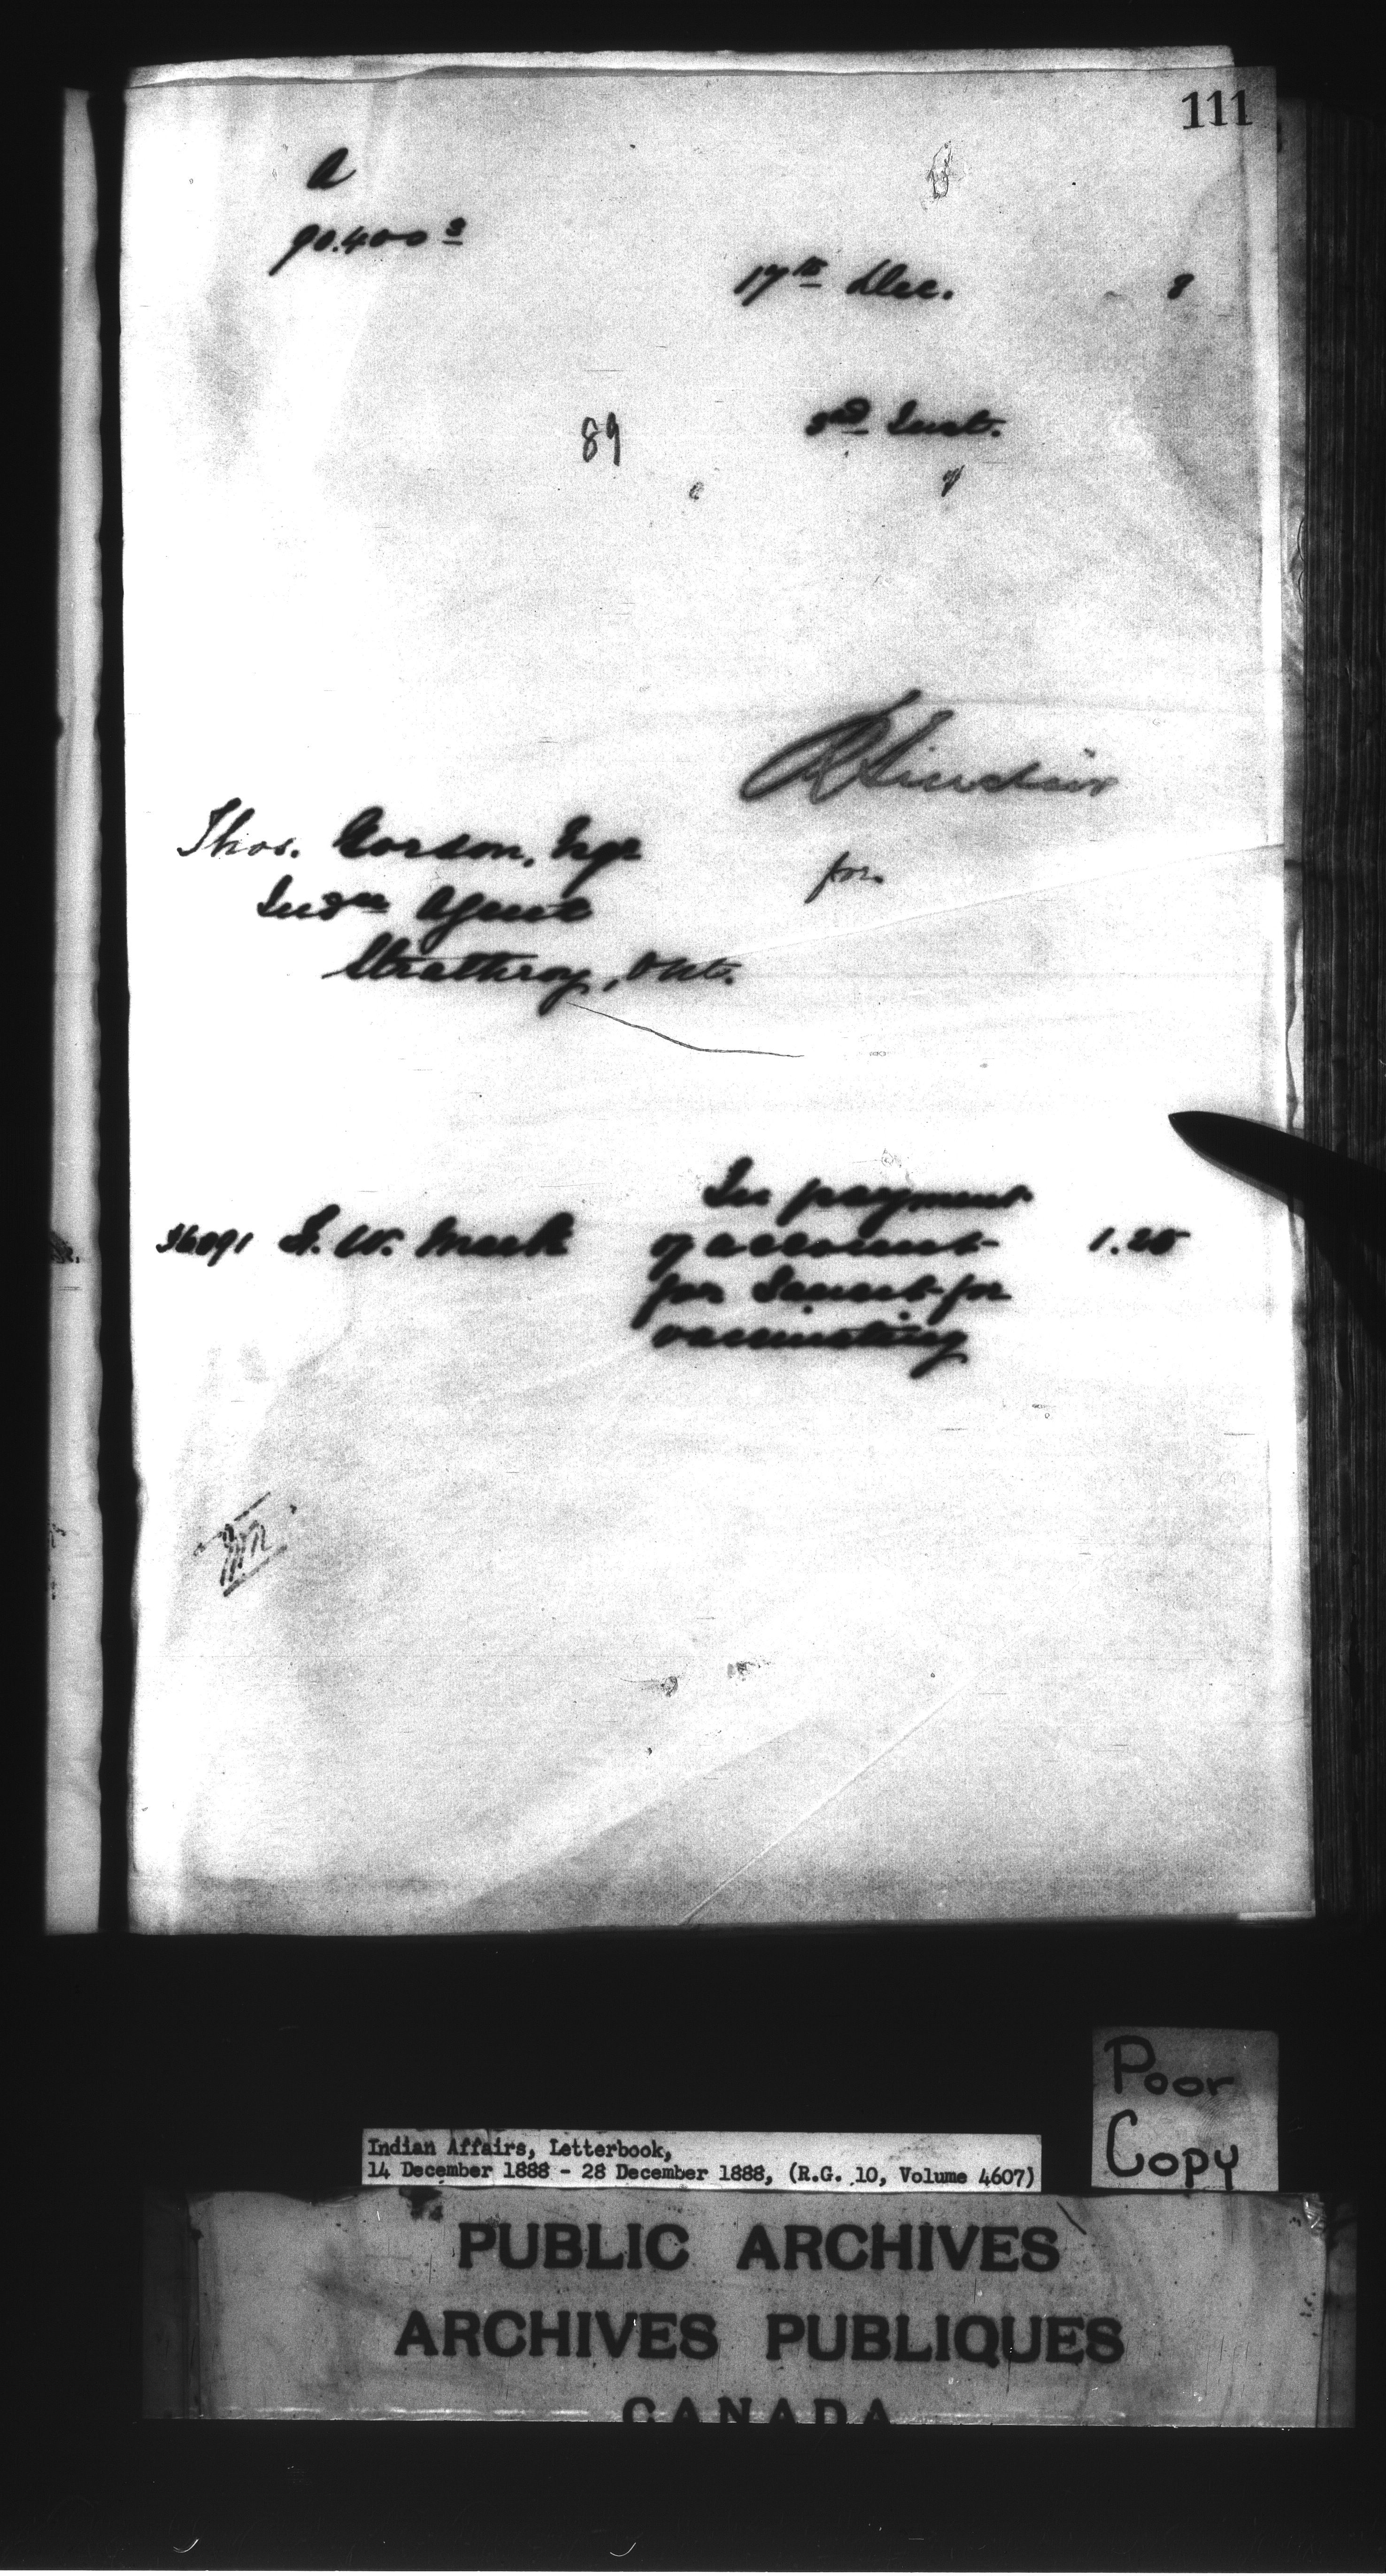 111
A
90.400 3
17th Dec. 8
89 3rd Inst.
R Sinclair
Thos. Gordon, Esqr
for
Indn Agent
Strathroy, Ont.
In payment
36091 F. W. Meek of account 1.25
for for
vaccinating
Poor
Copy
Indian Affairs, Letterbook,
14 December 1888 - 28 December 1888, (R.G. 10, Volume 4607)
PUBLIC ARCHIVES
ARCHIVES PUBLIQUES
CANADA